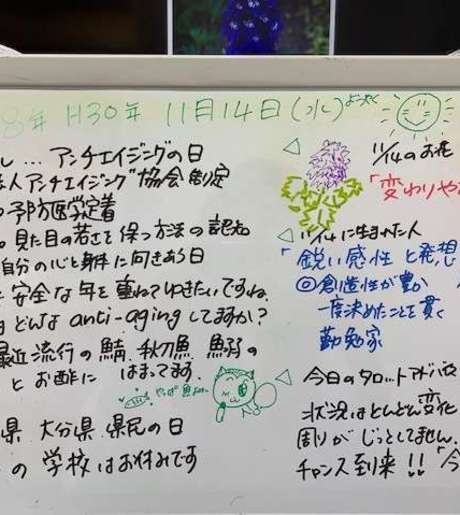 8年 H30年 11月14日(水)
し… アンチエイジングの日
法人アンチエイジング協会制定
の予防医学定着
の見た目の若さを保つ方法の認知
自分の心と身体に向きあう日
安全な年を重ねてゆきたいですね。
はどんなanti-agingしてますか?
最近流行の鯖 秋刀魚 鰯の
とお酢に はまってます。
やっぱ魚
県 大分県 県民の日
の学校はお休みです
11/14のお花
「変わりや
11/14に生まれた人
「鋭い感性と発想
◎創造性が豊か
一度決めたことを貫く
勤勉家
今日のタロットアドバイス
状況はどんどん変化
周りがじっとしてません。
チャンス到来!!「今